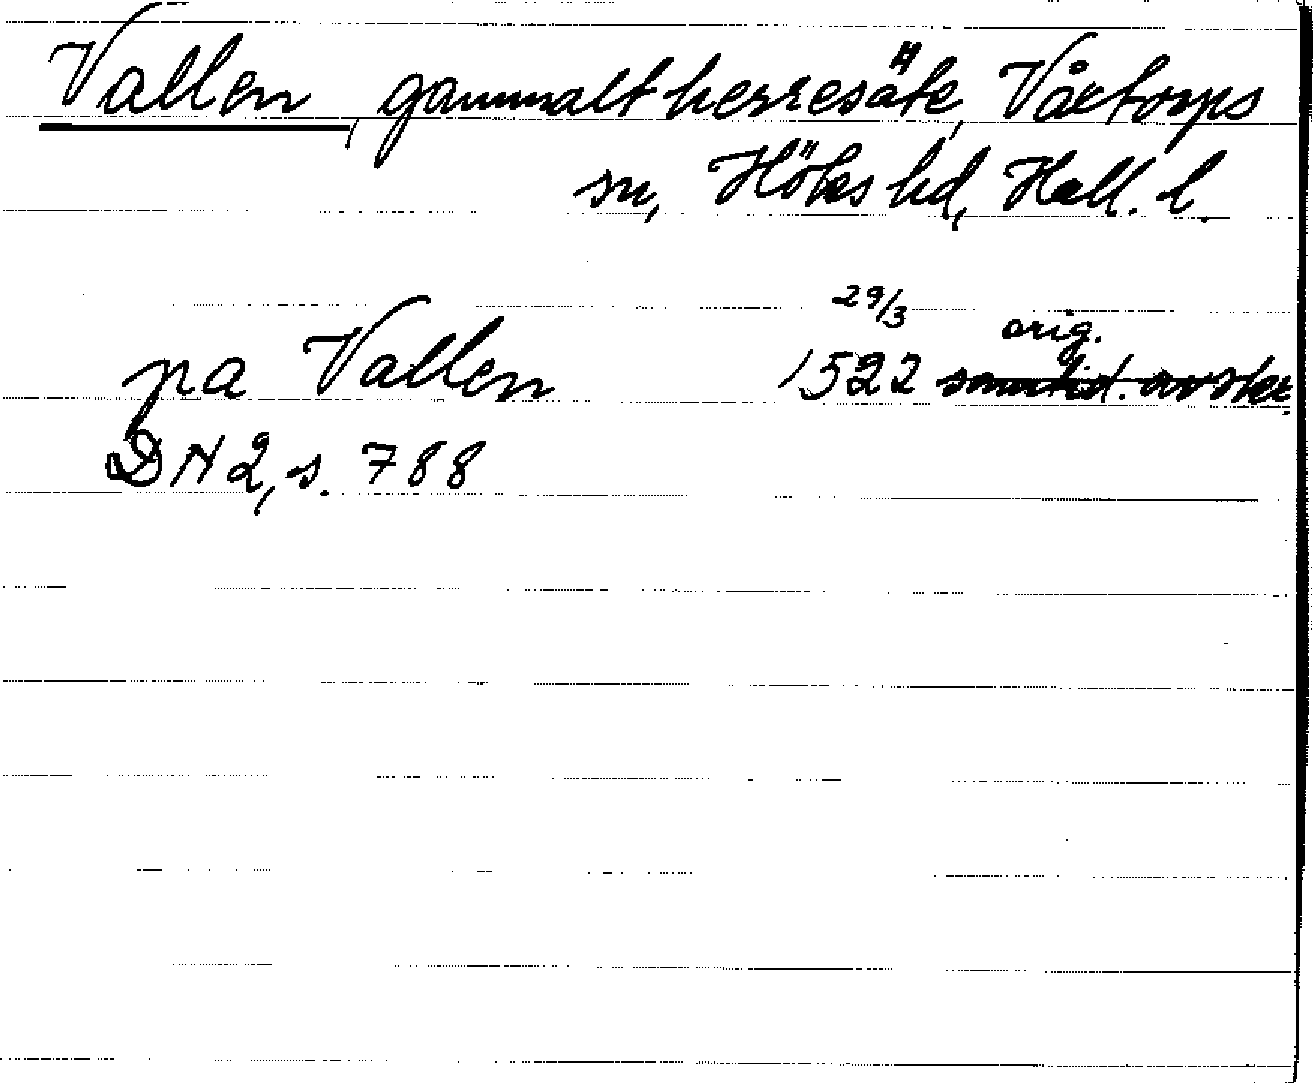 Vallen, gammalt herresäte, Våxtorps
sn, Höks hd, Hall. l.
29/3
orig.
pa Vallen 1522 samtid. avskr.
DN 2, s. 788